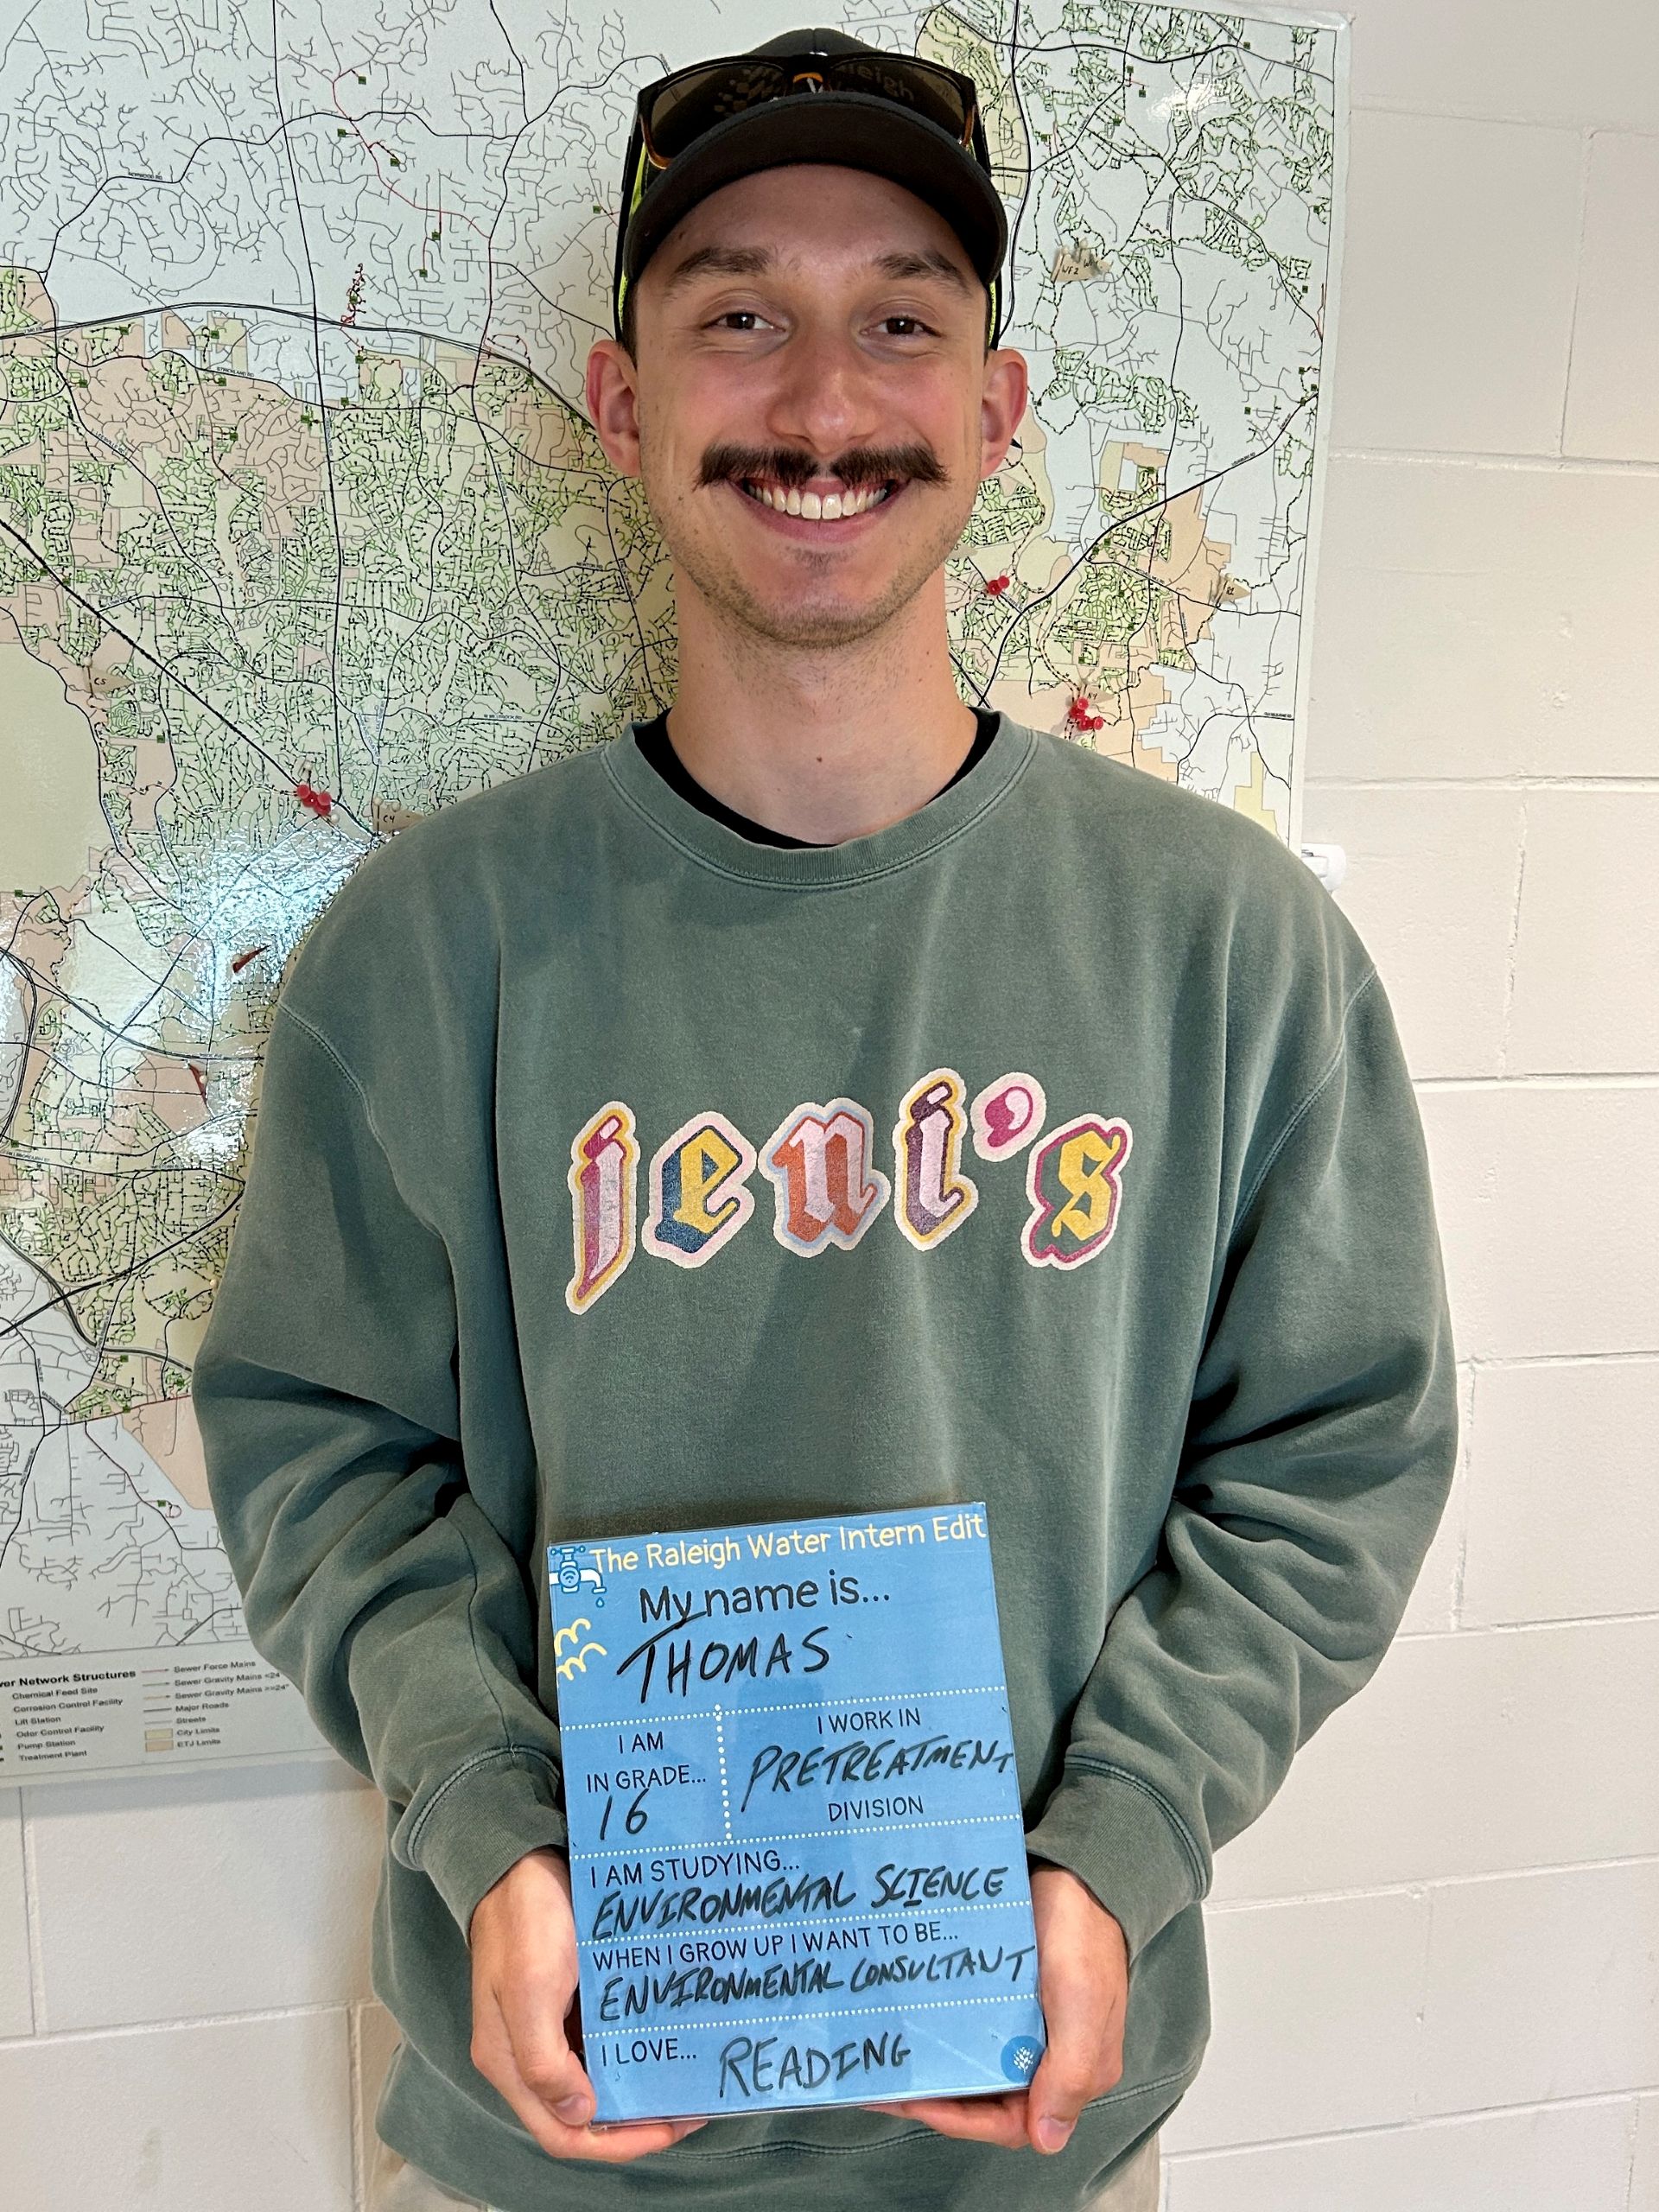 Raleigh
jeni's
The Raleigh Water Intern Edit
My name is...
THOMAS
I AM
IN GRADE...
16
I WORK IN
PRETREATMENT
DIVISION
I AM STUDYING...
ENVIRONMENTAL SCIENCE
WHEN I GROW UP I WANT TO BE...
ENVIRONMENTAL CONSULTANT
I LOVE... READING
Network Structures
Chemical Feed Site
Corrosion Control Facility
Lift Station
Odor Control Facility
Pump Station
Treatment Plant
Sewer Force Mains
Sewer Gravity Mains <24
Sewer Gravity Mains >=24"
Major Roads
Streets
City Limits
ETJ Limits
C5
C4